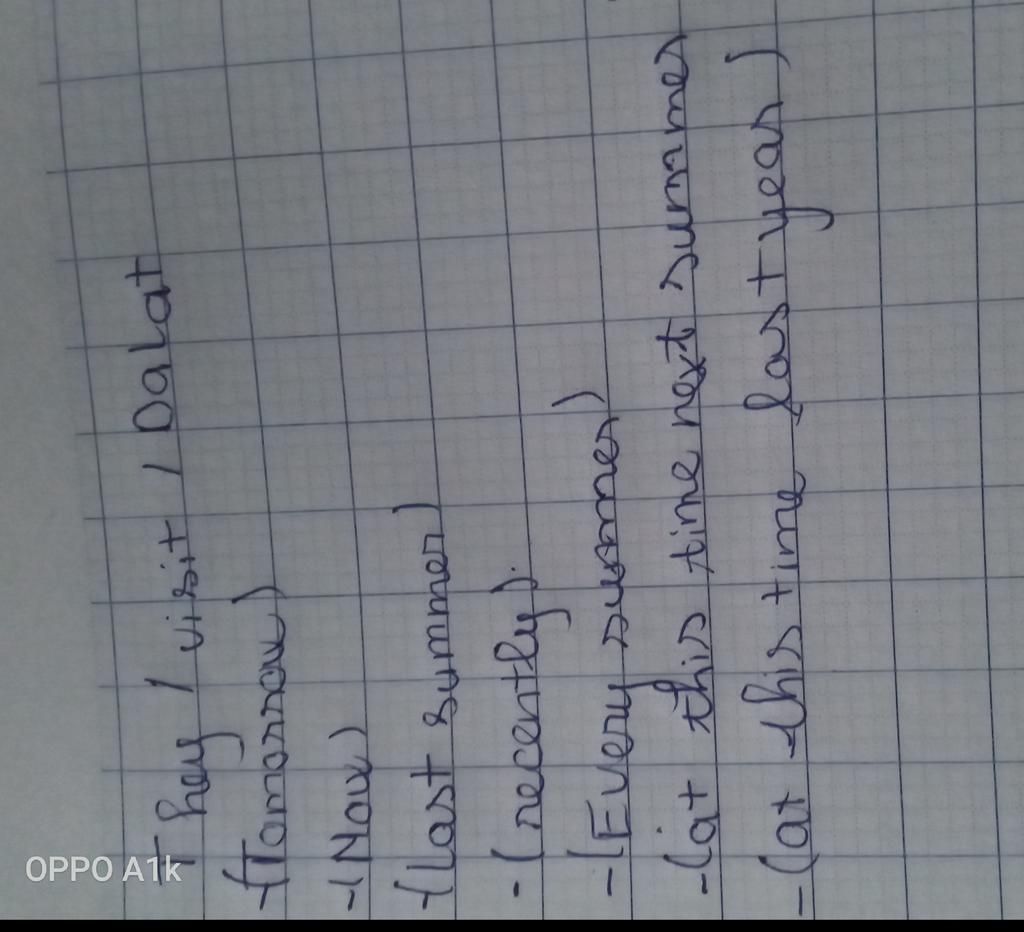 They / visit / DaLat
-(Tomorrow)
-(Now)
-(Last summer)
-(recently).
-(Every summer)
-(at this time next summer
-(at this time last year)
OPPO A1k